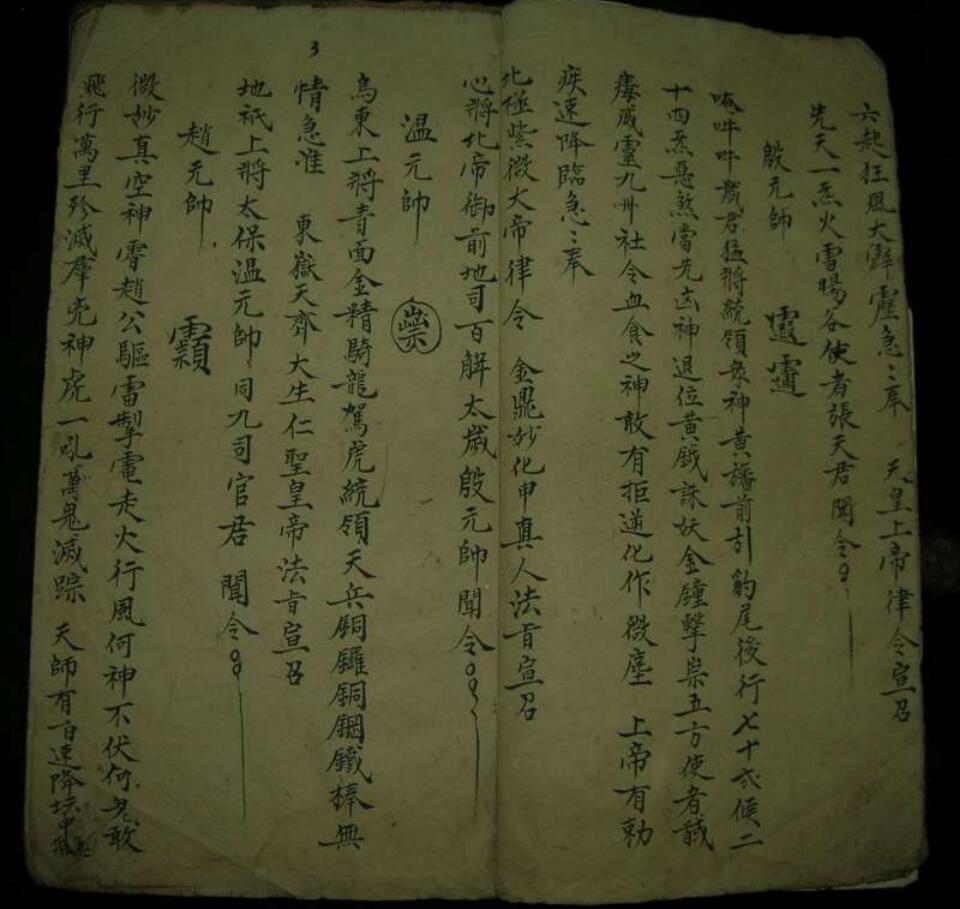 六起狂風大噼靂急〻奉　天皇上帝律令宣召
先天一炁火雷暘谷使者張天君聞令
殷元帥
唵吽吽歲君猛將統領衆神黄旛前引豹尾後行七十弍候二
十四炁惡煞當先凶神退位黄鉞誅妖金鐘擊祟五方使者
歲靈九州社令血食之神敢有拒逆化作微塵　上帝有勅
疾速降臨急〻奉
北極紫微大帝律令　金鼎妙化申真人法旨宣召
心將北帝御前地司百解太歲殷元帥聞令
温元帥
烏東上將青面金精騎龍駕虎統領天兵銅鑼銅鋼鐵棒無
情急准　東嶽天齊大生仁聖皇帝法旨宣召
地祇上將太保温元帥同九司官君　聞令
趙元帥
微妙真空神霄趙公驅雷掣電走火行風何神不伏何鬼敢
飛行萬里殄滅群兇神虎一吼萬鬼滅踪　天師有旨速降坛中
3